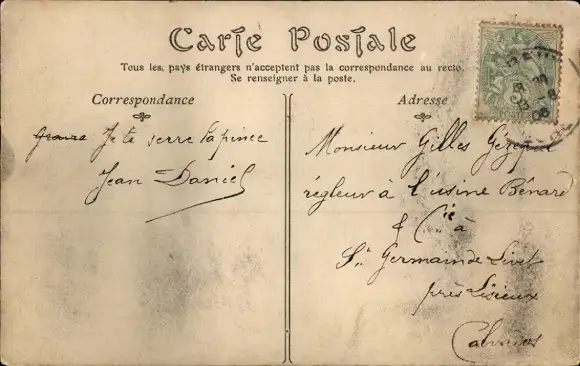 Carte Postale
Tous les pays étrangers n'acceptent pas la correspondance au recto.
Se renseigner à la poste.
Correspondance
Je te serre la pince
Jean Daniel
Adresse
Monsieur Gilles
régleur à l'usine Bénard
& Cie à
St Germain de Livet
près Lisieux
Calvados
POSTES